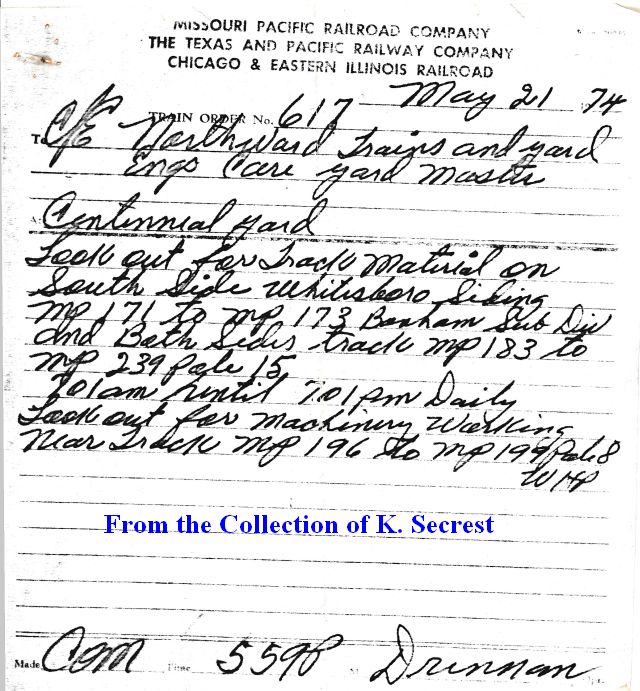 MISSOURI PACIFIC RAILROAD COMPANY
THE TEXAS AND PACIFIC RAILWAY COMPANY
CHICAGO & EASTERN ILLINOIS RAILROAD
May 21 1974
TRAIN ORDER No. 617
To C/E Northward Trains and yard
Engs Care yard Master
At Centennial yard
Look out for Track Material on
South Side Whitesboro Siding
MP 171 to MP 173 Bonham Sub Div
and Both Sides track MP 183 to
MP 239 Pole 15
701 am until 7.01 pm Daily
Look out for Machinery Working
Near Track MP 196 to MP 199 Pole 8
WHP
From the Collection of K. Secrest
Made Com Time 559P At Drennan Opr.